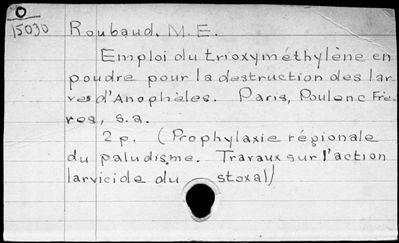 O
15030
Roubaud, M. E.
Emploi du trioxyméthylène en
poudre pour la destruction des lar
ves d'Anophèles. Paris, Poulenc Frè-
res, s.a.
2 p. (Prophylaxie régionale
du paludisme. Travaux sur l'action
larvicide du stoxal)